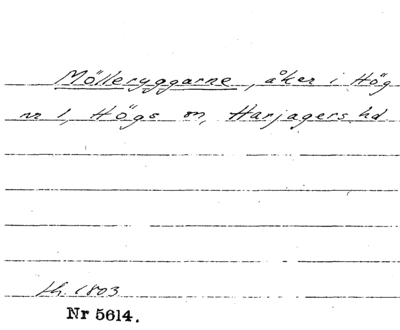 Mölleryggarne, åker i Hög
nr 1, Högs sn, Harjagers hd
1803
Nr 5614.